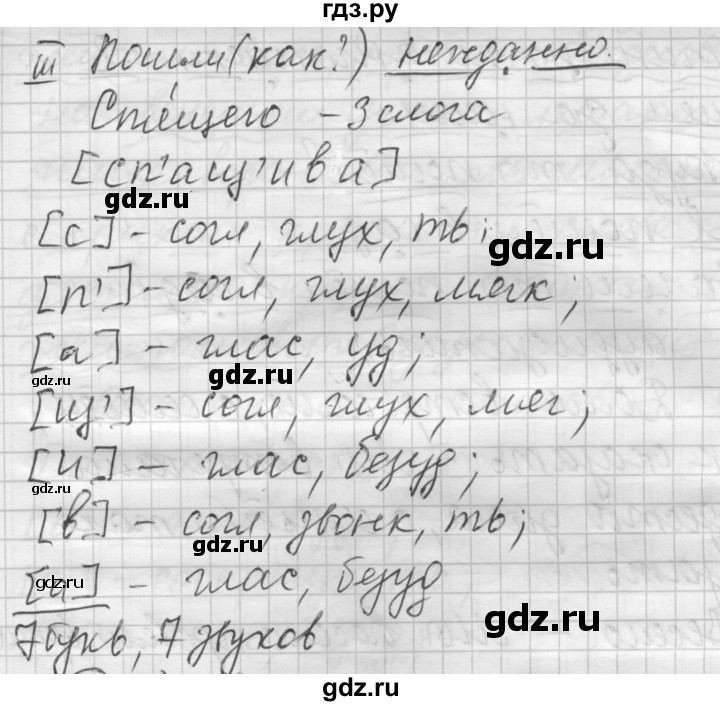 гдз.ру
III Пошли (как?) нежданно.
Спя́щего – 3 слога
[сп'ащ'ива]
gdz.ru
[с] – согл, глух, тв;
gdz.ru
[п'] – согл, глух, мягк;
[а] – глас, уд;
gdz.ru
gdz.ru
[щ'] – согл, глух, мяг;
[и] – глас, безуд;
gdz.ru
[в] – согл, звонк, тв;
gdz.ru
[а] – глас, безуд
gdz.ru
gdz.ru
7 букв, 7 звуков
gdz.ru